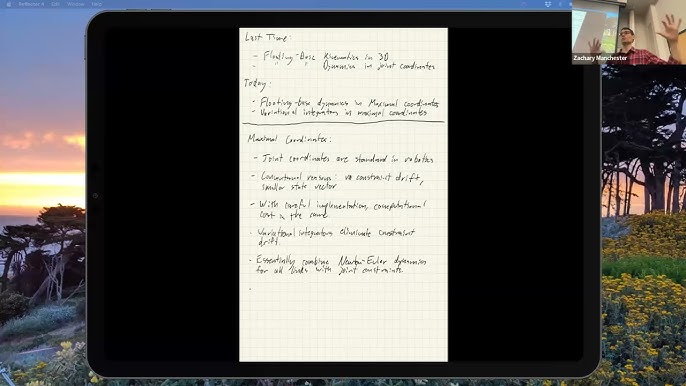 Reflector 4 Edit Window Help
Zachary Manchester
Last Time:
- Floating-Base Kinematics in 3D
- Dynamics in joint coordinates
Today:
- Floating-base dynamics in Maximal coordinates
- Variational integrators in maximal coordinates
Maximal Coordinates:
- Joint coordinates are standard in robotics
- Conventional reasons: no constraint drift,
smaller state vector
- With careful implementation, computational
cost is the same
- Variational integrators eliminate constraint
drift.
- Essentially combine Newton-Euler dynamics
for all links with joint constraints.